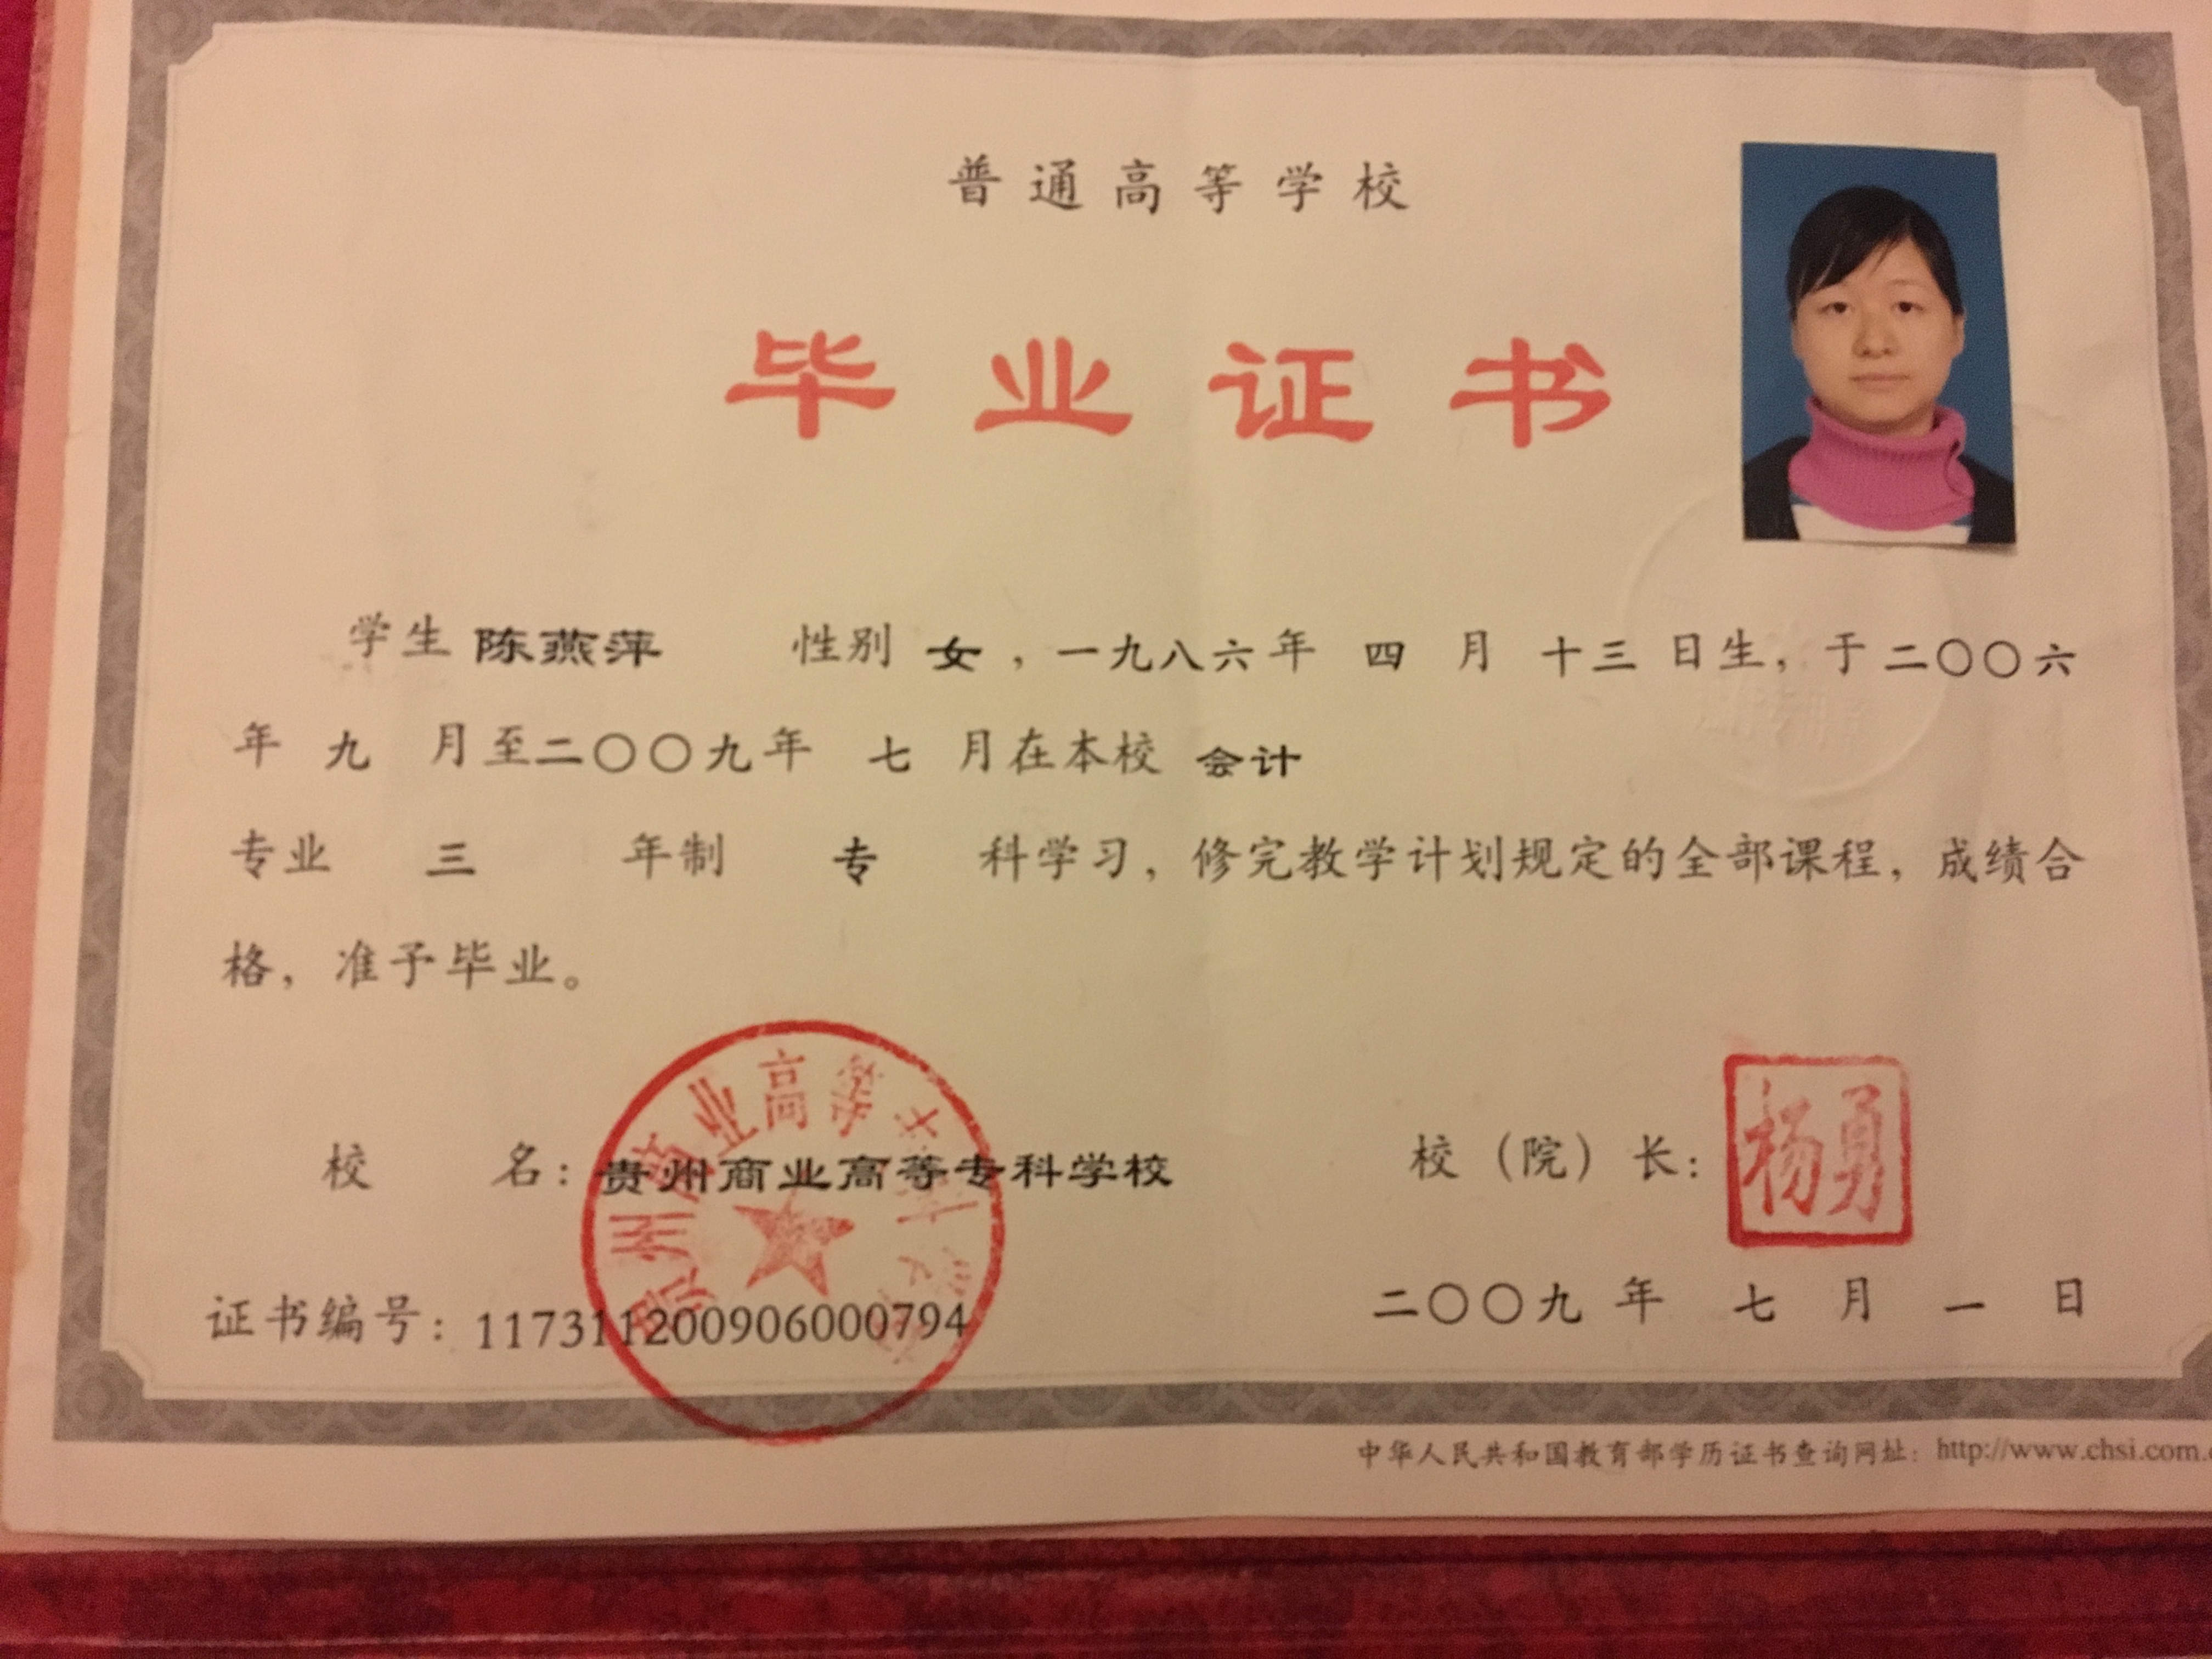 普通高等学校
毕业证书
学生 陈燕萍 性别 女，一九八六年 四 月 十三 日生，于二〇〇六
年 九 月至二〇〇九年 七 月在本校 会计
专业 三 年制 专 科学习，修完教学计划规定的全部课程，成绩合
格，准予毕业。
校 名：贵州商业高等专科学校
校（院）长：杨勇
证书编号：117311200906000794
二〇〇九 年 七 月 一 日
中华人民共和国教育部学历证书查询网址：http://www.chsi.com.
贵州商业高等专科学校